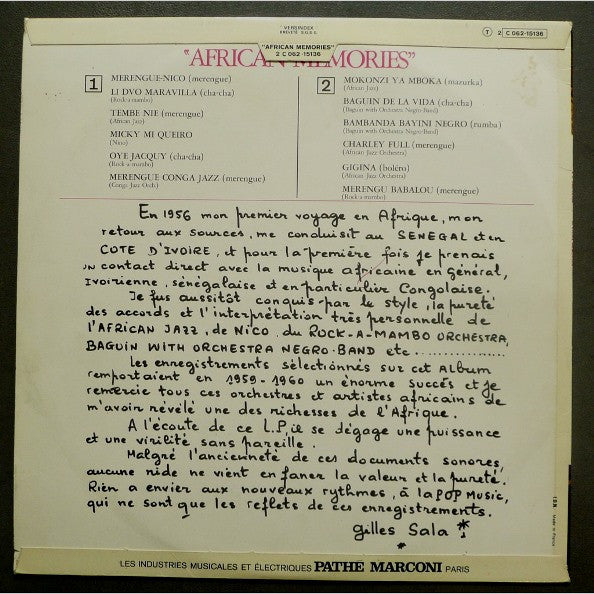 VERSINDEX
BREVETÉ S.G.D.G.
Ⓣ 2 C 062-15136
"AFRICAN MEMORIES"
2 C 062-15136
"AFRICAN MEMORIES"
1
MERENGUE-NICO (merengue)
LI DVO MARAVILLA (cha-cha)
(Rock-a-mambo)
TEMBE NIE (merengue)
(African Jazz)
MICKY MI QUEIRO
(Nino)
OYE JACQUY (cha-cha)
(Rock-a-mambo)
MERENGUE CONGA JAZZ (merengue)
(Conga Jazz Orch.)
2
MOKONZI YA MBOKA (mazurka)
(African Jazz)
BAGUIN DE LA VIDA (cha-cha)
(Baguin with Orchestra Negro-Band)
BAMBANDA BAYINI NEGRO (rumba)
(Baguin with Orchestra Negro-Band)
CHARLEY FULL (merengue)
(African Jazz Orchestra)
GIGINA (boléro)
(African Jazz Orchestra)
MERENGU BABALOU (merengue)
(Rock-a-mambo)
En 1956 mon premier voyage en Afrique, mon
retour aux sources, me conduisit au SENEGAL et en
COTE D'IVOIRE, et pour la première fois je prenais
un contact direct avec la musique africaine en général,
Ivoirienne, sénégalaise et en particulier Congolaise.
Je fus aussitôt conquis par le style, la pureté
des accords et l'interprétation très personnelle de
l'AFRICAN JAZZ, de NICO, du ROCK-A-MAMBO ORCHESTRA,
BAGUIN WITH ORCHESTRA NEGRO-BAND etc ...............
les enregistrements sélectionnés sur cet ALBUM
remportaient en 1959-1960 un énorme succès et je
remercie tous ces orchestres et artistes africains de
m'avoir révélé une des richesses de l'Afrique.
A l'écoute de ce L.P, il se dégage une puissance
et une virilité sans pareille.
Malgré l'ancienneté de ces documents sonores,
aucune ride ne vient en faner la valeur et la pureté.
Rien a envier aux nouveaux rythmes, à la POP MUSIC,
qui ne sont que les reflets de ces enregistrements.
Gilles Sala
Made in France
LES INDUSTRIES MUSICALES ET ÉLECTRIQUES PATHE MARCONI PARIS